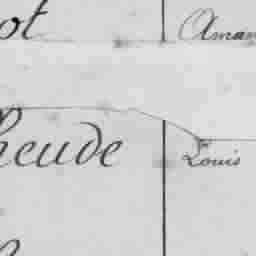 ot Aman
heude Louis